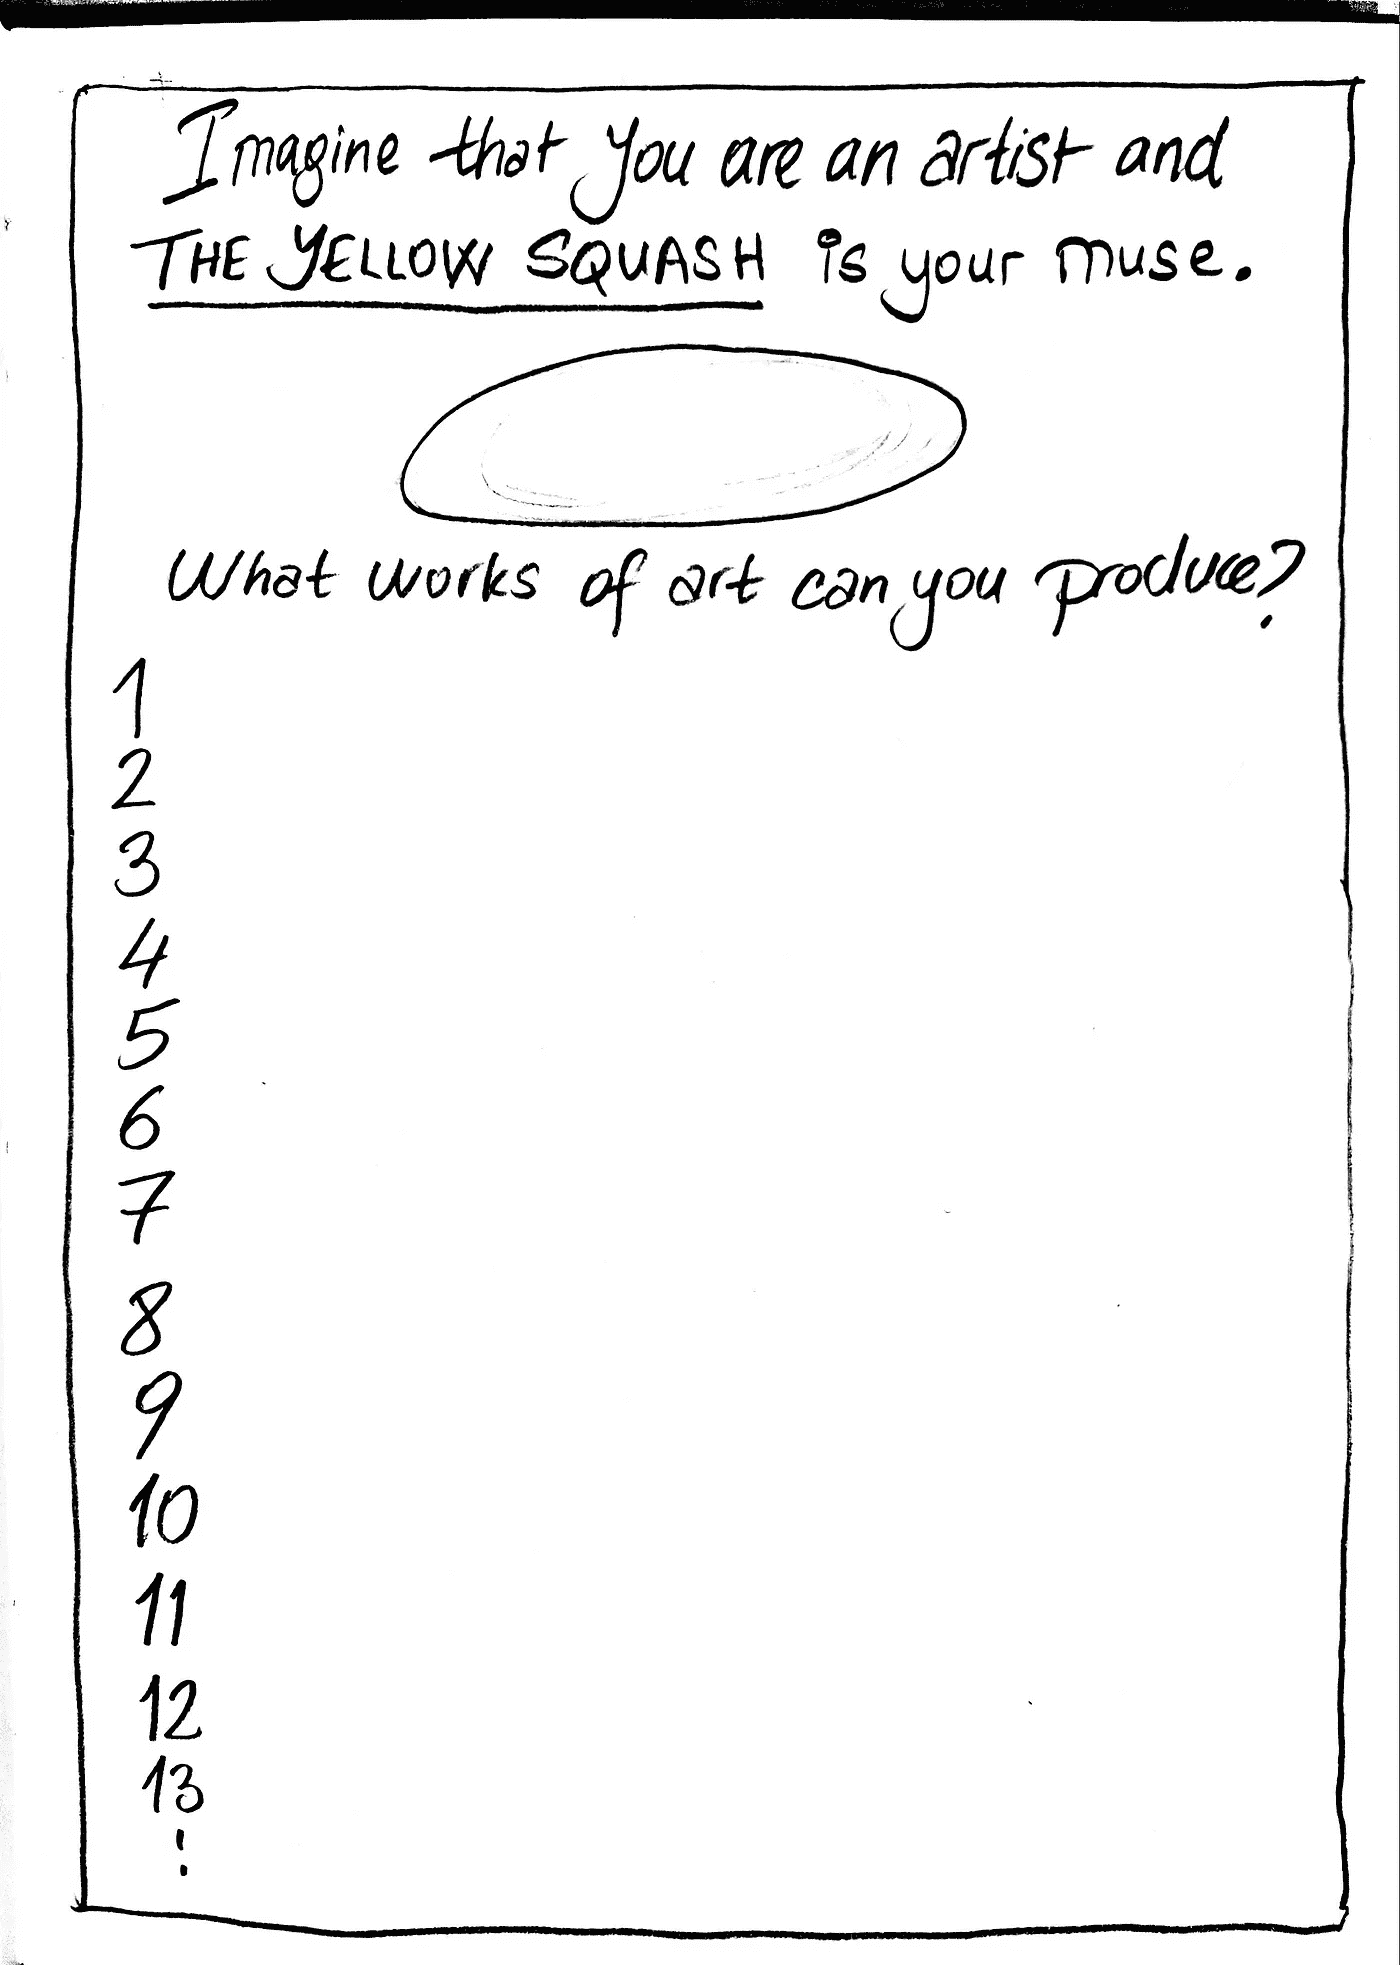 Imagine that you are an artist and
THE YELLOW SQUASH is your muse.
What works of art can you produce?
1
2
3
4
5
6
7
8
9
10
11
12
13
!